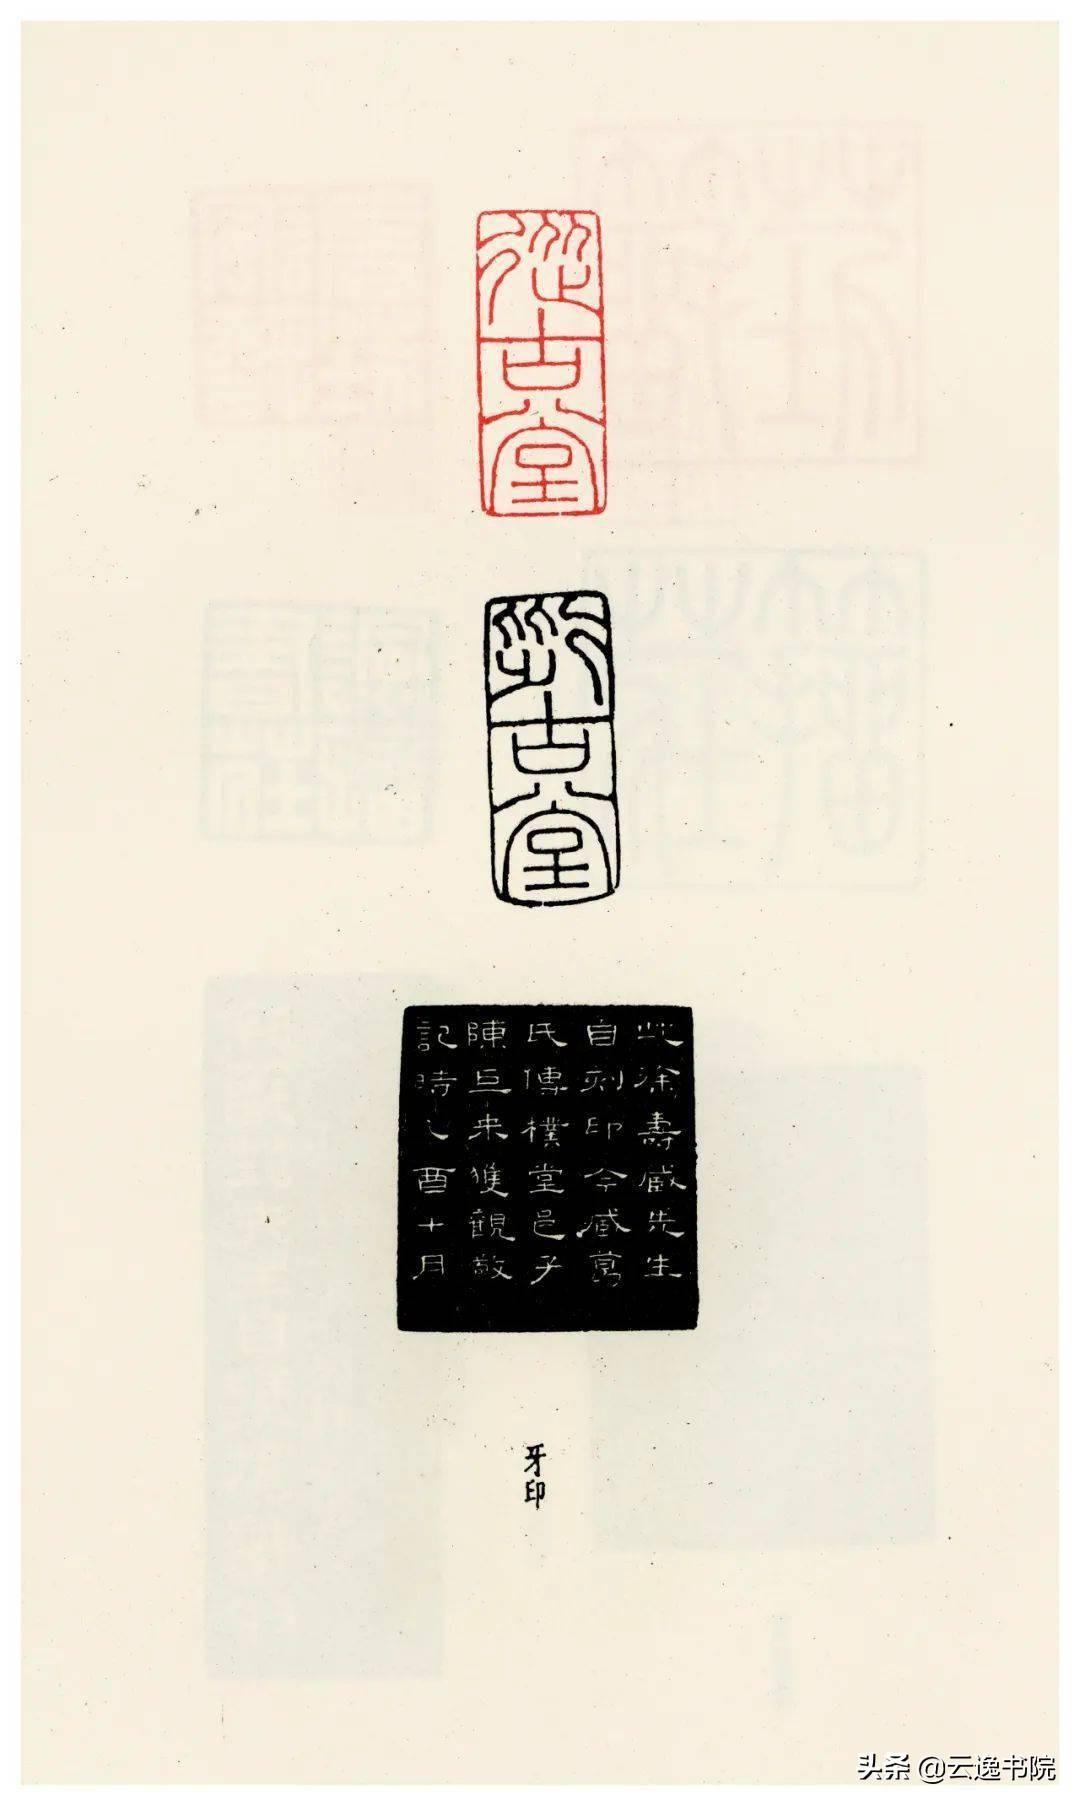 從古堂
從古堂
此徐壽臧先生
自刻印今臧葛
氏傳樸堂邑子
陳巨来獲觀敬
記時乙酉十月
牙印
头条 @云逸书院